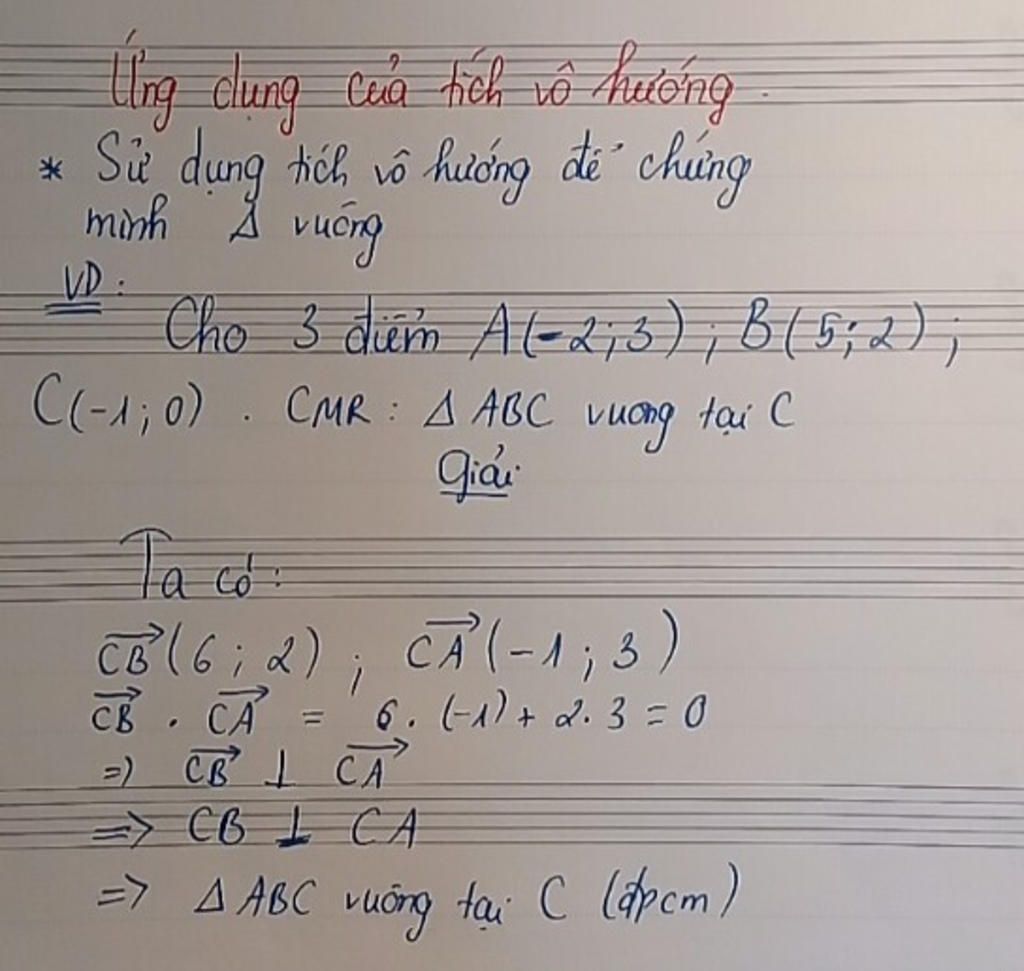 Ứng dụng của tích vô hướng.
* Sử dụng tích vô hướng để chứng
minh Δ vuông
VD:
Cho 3 điểm A(-2;3); B(5;2);
C(-1;0). CMR: Δ ABC vuong tại C
Giải
Ta có:
→CB(6;2); →CA(-1;3)
→CB . →CA = 6.(-1)+2.3=0
=> →CB ⊥ →CA
=> CB ⊥ CA
=> Δ ABC vuông tại C (đpcm)